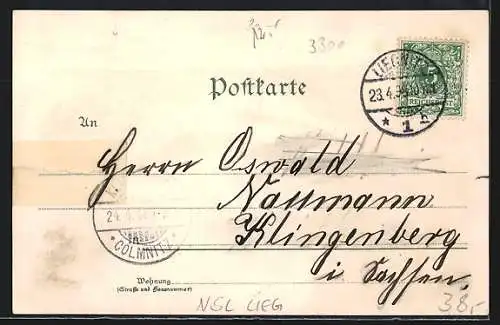 3300
Postkarte
LIEGNITZ
5
REICHSPOST
23.4.
* 1 h
An
Herrn Oswald
Naumann
Klingenberg
i Sachsen.
24.4.
* COLMNITZ *
Wohnung
(Straße und Hausnummer)
NSL LIEG
38.-